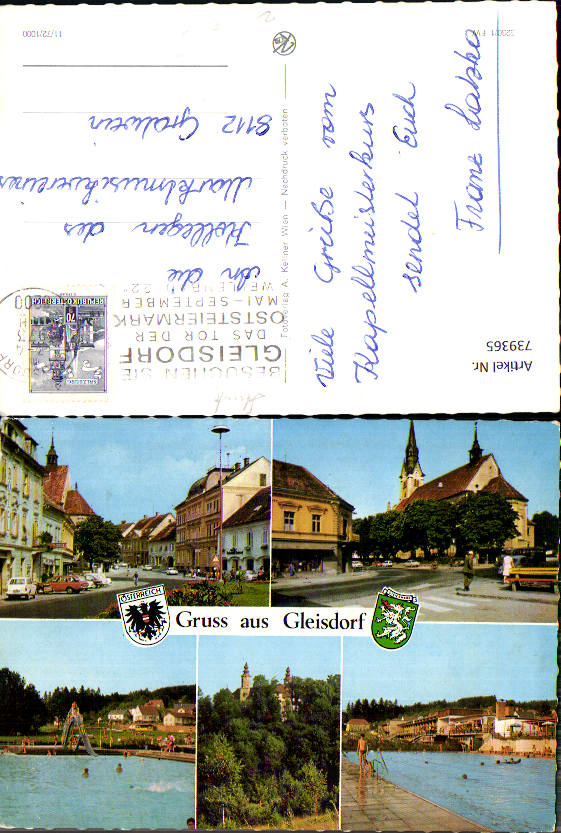 Viele Grüße vom
Kapellmeisterkurs
sendet Euch
Franz
An die
Kollegen des
Marktmusikvereines
8112 Gratwein
BESUCHEN SIE
GLEISDORF
DAS TOR DER
OSTSTEIERMARK
MAI-SEPTEMBER
REPUBLIK ÖSTERREICH
SALZBURG
Fotoverlag A. Kellner, Wien — Nachdruck verboten
11/72/1000
Artikel Nr. 739365
ÖSTERREICH
Gruss aus Gleisdorf